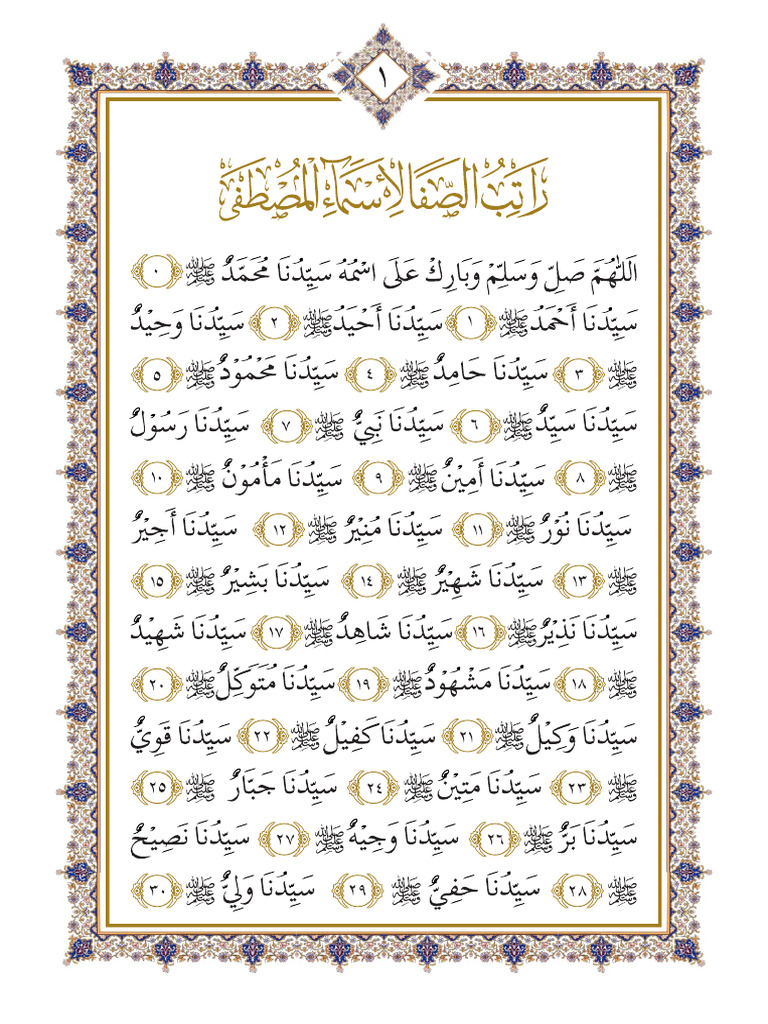 ١
رَاتِبُ الصَّفَا لِأَسْمَاءِ الْمُصْطَفَى
اَللّٰهُمَّ صَلِّ وَسَلِّمْ وَبَارِكْ عَلَى اسْمُهُ سَيِّدُنَا مُحَمَّدٌ ﷺ ٠
سَيِّدُنَا أَحْمَدُ ﷺ ١ سَيِّدُنَا أَحْيَدُ ﷺ ٢ سَيِّدُنَا وَحِيْدٌ
ﷺ ٣ سَيِّدُنَا حَامِدٌ ﷺ ٤ سَيِّدُنَا مَحْمُوْدٌ ﷺ ٥
سَيِّدُنَا سَيِّدٌ ﷺ ٦ سَيِّدُنَا نَبِيٌّ ﷺ ٧ سَيِّدُنَا رَسُوْلٌ
ﷺ ٨ سَيِّدُنَا أَمِيْنٌ ﷺ ٩ سَيِّدُنَا مَأْمُوْنٌ ﷺ ١٠
سَيِّدُنَا نُوْرٌ ﷺ ١١ سَيِّدُنَا مُنِيْرٌ ﷺ ١٢ سَيِّدُنَا أَجِيْرٌ
ﷺ ١٣ سَيِّدُنَا شَهِيْرٌ ﷺ ١٤ سَيِّدُنَا بَشِيْرٌ ﷺ ١٥
سَيِّدُنَا نَذِيْرٌ ﷺ ١٦ سَيِّدُنَا شَاهِدٌ ﷺ ١٧ سَيِّدُنَا شَهِيْدٌ
ﷺ ١٨ سَيِّدُنَا مَشْهُوْدٌ ﷺ ١٩ سَيِّدُنَا مُتَوَكِّلٌ ﷺ ٢٠
سَيِّدُنَا وَكِيْلٌ ﷺ ٢١ سَيِّدُنَا كَفِيْلٌ ﷺ ٢٢ سَيِّدُنَا قَوِيٌّ
ﷺ ٢٣ سَيِّدُنَا مَتِيْنٌ ﷺ ٢٤ سَيِّدُنَا جَبَّارٌ ﷺ ٢٥
سَيِّدُنَا بَرٌّ ﷺ ٢٦ سَيِّدُنَا وَجِيْهٌ ﷺ ٢٧ سَيِّدُنَا نَصِيْحٌ
ﷺ ٢٨ سَيِّدُنَا حَفِيٌّ ﷺ ٢٩ سَيِّدُنَا وَلِيٌّ ﷺ ٣٠